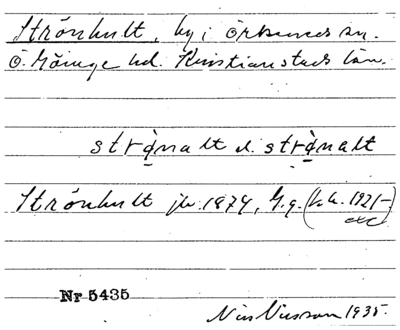 Strönhult, by i Örkeneds sn.
Ö. Göinge hd. Kristianstads län.
strò̤nalt el. strò̤nalt
Strönhult jb. 1874, G.q. (k.k. 1921-
Nr 5435
Nils Nilsson 1935.